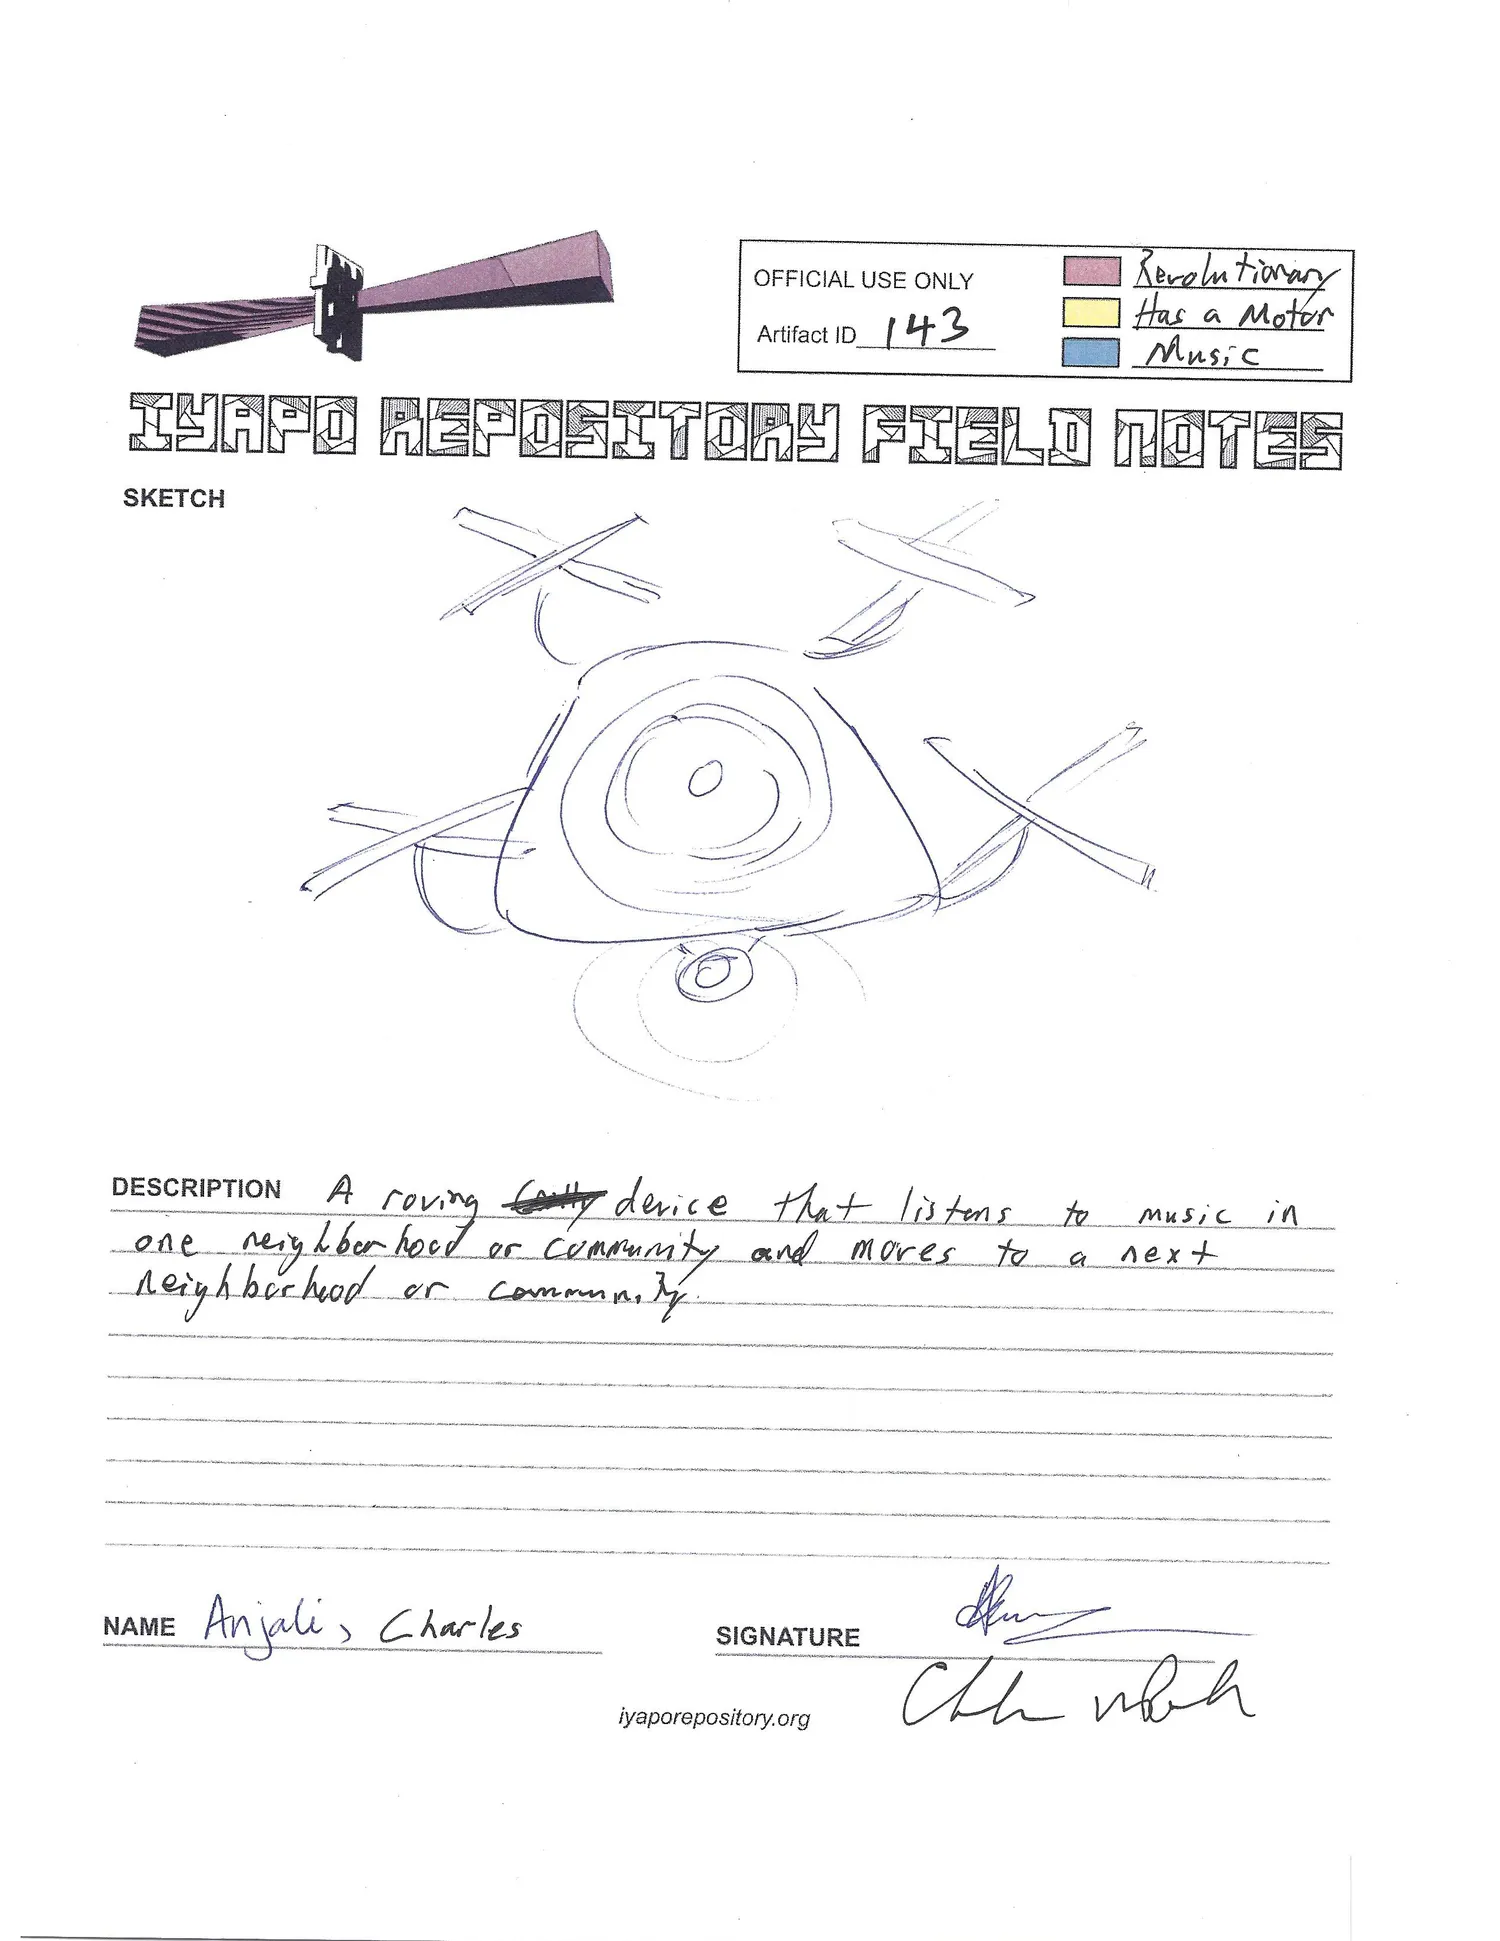 OFFICIAL USE ONLY
Artifact ID 143
Revolutionary
Has a Motor
Music
IYAPO REPOSITORY FIELD NOTES
SKETCH
DESCRIPTION A roving device that listens to music in
one neighborhood or community and moves to a next
neighborhood or community.
NAME Anjali, Charles
SIGNATURE
iyaporepository.org